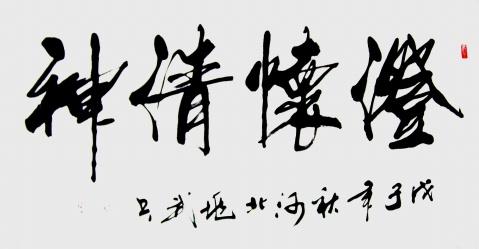 澄懷清神
戊子年秋河北武